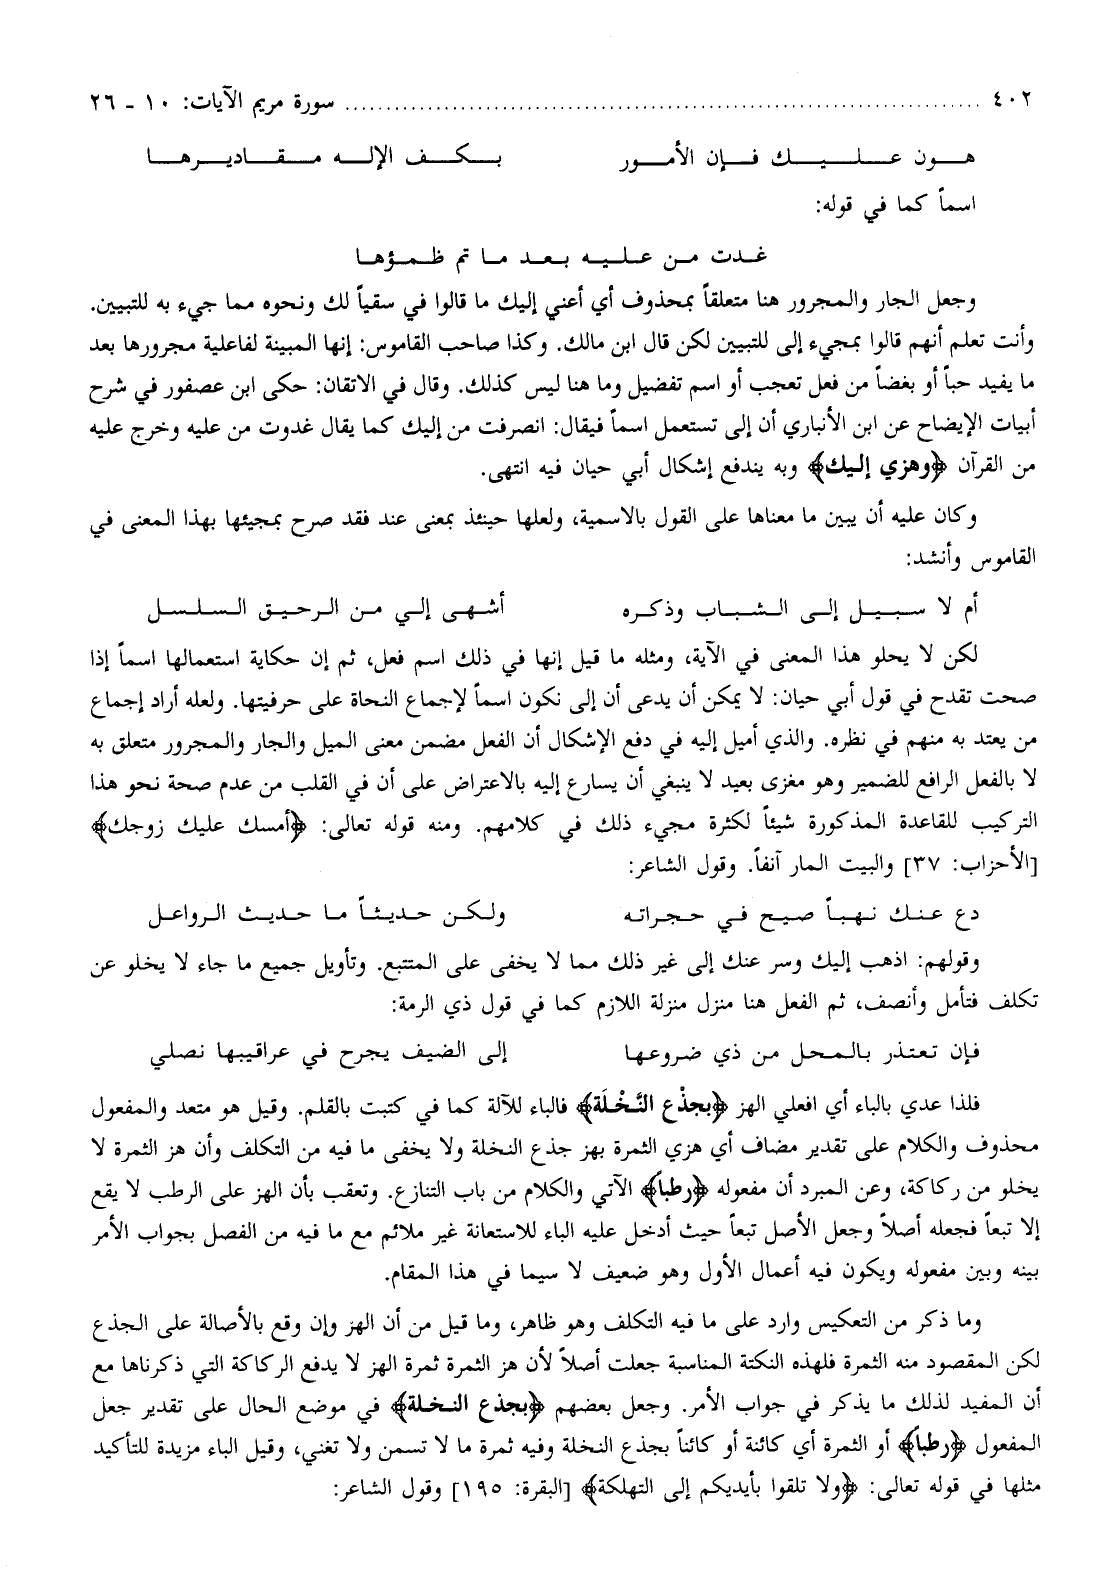 ٤٠٢ ........ سورة مريم الآيات: ١٠ - ٢٦
هون عليك فإن الأمور بكف الإله مقاديرها
اسماً كما في قوله:
غدت من عليه بعد ما تم ظمؤها
وجعل الجار والمجرور هنا متعلقاً بمحذوف أي أعني إليك ما قالوا في سقياً لك ونحوه مما جيء به للتبيين.
وأنت تعلم أنهم قالوا بمجيء إلى للتبيين لكن قال ابن مالك. وكذا صاحب القاموس: إنها المبينة لفاعلية مجرورها بعد
ما يفيد حباً أو بغضاً من فعل تعجب أو اسم تفضيل وما هنا ليس كذلك. وقال في الاتقان: حكى ابن عصفور في شرح
أبيات الإيضاح عن ابن الأنباري أن إلى تستعمل اسماً فيقال: انصرفت من إليك كما يقال غدوت من عليه وخرج عليه
من القرآن ﴿وهزي إليك﴾ وبه يندفع إشكال أبي حيان فيه انتهى.
وكان عليه أن يبين ما معناها على القول بالاسمية، ولعلها حينئذ بمعنى عند فقد صرح بمجيئها بهذا المعنى في
القاموس وأنشد:
أم لا سبيل إلى الشباب وذكره أشهى إلي من الرحيق السلسل
لكن لا يحلو هذا المعنى في الآية، ومثله ما قيل إنها في ذلك اسم فعل، ثم إن حكاية استعمالها اسماً إذا
صحت تقدح في قول أبي حيان: لا يمكن أن يدعى أن إلى نكون اسماً لإجماع النحاة على حرفيتها. ولعله أراد إجماع
من يعتد به منهم في نظره. والذي أميل إليه في دفع الإشكال أن الفعل مضمن معنى الميل والجار والمجرور متعلق به
لا بالفعل الرافع للضمير وهو مغزى بعيد لا ينبغي أن يسارع إليه بالاعتراض على أن في القلب من عدم صحة نحو هذا
التركيب للقاعدة المذكورة شيئاً لكثرة مجيء ذلك في كلامهم. ومنه قوله تعالى: ﴿أمسك عليك زوجك﴾
[الأحزاب: ٣٧] والبيت المار آنفاً. وقول الشاعر:
دع عنك نهباً صيح في حجراته ولكن حديثاً ما حديث الرواعل
وقولهم: اذهب إليك وسر عنك إلى غير ذلك مما لا يخفى على المتتبع. وتأويل جميع ما جاء لا يخلو عن
تكلف فتأمل وأنصف، ثم الفعل هنا منزل منزلة اللازم كما في قول ذي الرمة:
فإن تعتذر بالمحل من ذي ضروعها إلى الضيف يجرح في عراقيبها نصلي
فلذا عدي بالباء أي افعلي الهز ﴿بجذْع النَّخْلَة﴾ فالباء للآلة كما في كتبت بالقلم. وقيل هو متعد والمفعول
محذوف والكلام على تقدير مضاف أي هزي الثمرة بهز جذع النخلة ولا يخفى ما فيه من التكلف وأن هز الثمرة لا
يخلو من ركاكة، وعن المبرد أن مفعوله ﴿رطباً﴾ الآتي والكلام من باب التنازع. وتعقب بأن الهز على الرطب لا يقع
إلا تبعاً فجعله أصلاً وجعل الأصل تبعاً حيث أدخل عليه الباء للاستعانة غير ملائم مع ما فيه من الفصل بجواب الأمر
بينه وبين مفعوله ويكون فيه أعمال الأول وهو ضعيف لا سيما في هذا المقام.
وما ذكر من التعكيس وارد على ما فيه التكلف وهو ظاهر، وما قيل من أن الهز وإن وقع بالأصالة على الجذع
لكن المقصود منه الثمرة فلهذه النكتة المناسبة جعلت أصلاً لأن هز الثمرة ثمرة الهز لا يدفع الركاكة التي ذكرناها مع
أن المفيد لذلك ما يذكر في جواب الأمر. وجعل بعضهم ﴿بجذع النخلة﴾ في موضع الحال على تقدير جعل
المفعول ﴿رطباً﴾ أو الثمرة أي كائنة أو كائناً بجذع النخلة وفيه ثمرة ما لا تسمن ولا تغني، وقيل الباء مزيدة للتأكيد
مثلها في قوله تعالى: ﴿ولا تلقوا بأيديكم إلى التهلكة﴾ [البقرة: ١٩٥] وقول الشاعر: